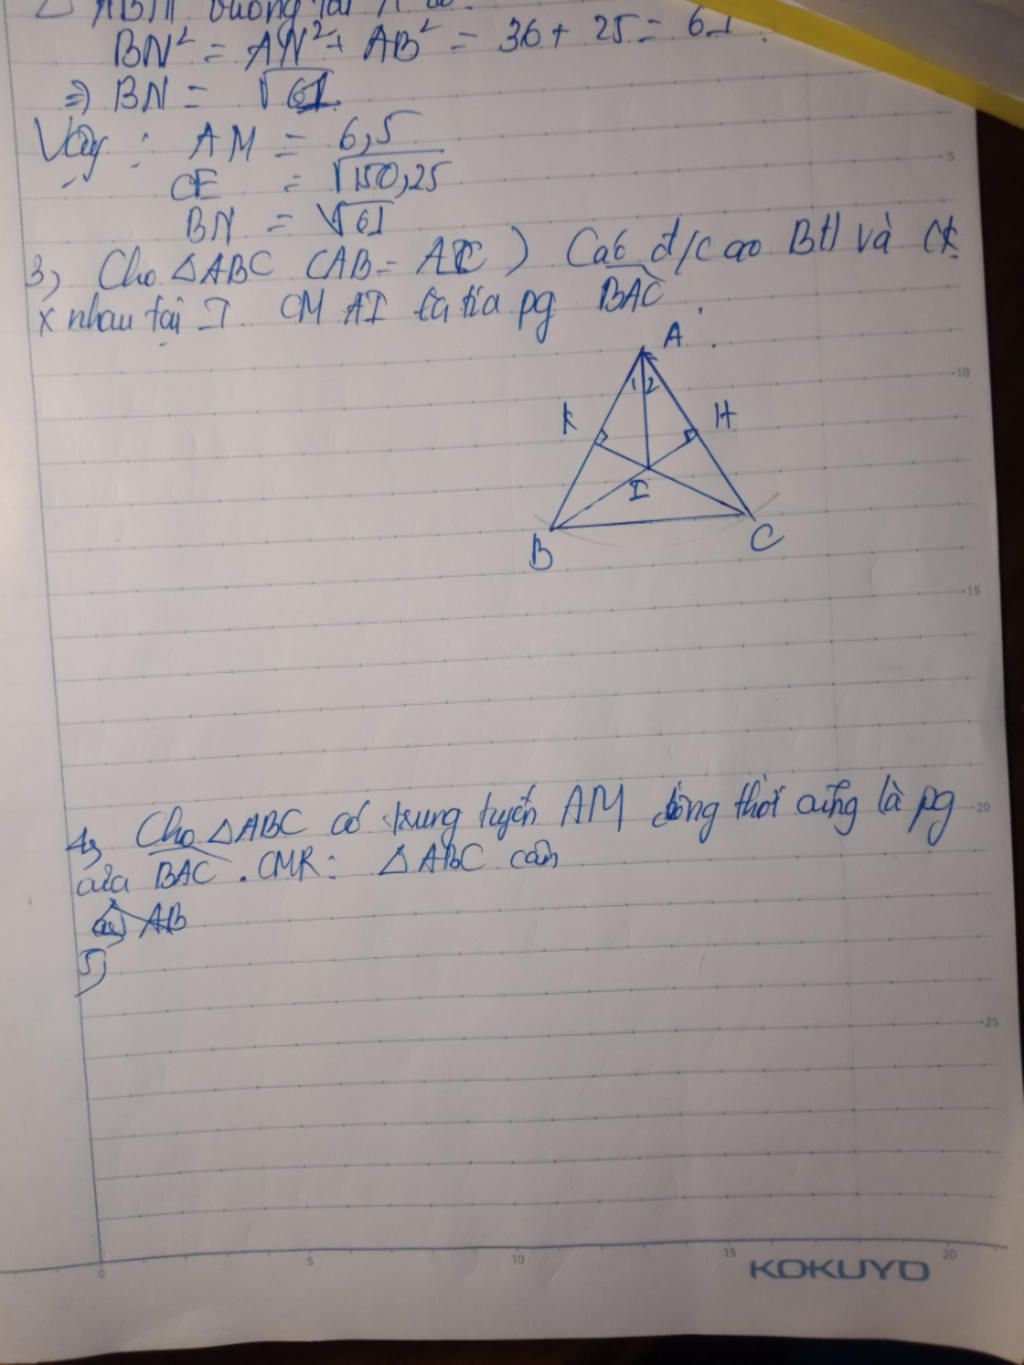 △ ABN vuông tại A có:
BN² = AN² + AB² = 36 + 25 = 61.
⇒ BN = √61.
Vậy : AM = 6,5
CE = √150,25
BN = √61
3) Cho △ABC (AB = AC) Các đ/cao BH và CK
x nhau tại I. CM AI là tia pg BAC
A
1 2
K H
I
B C
4) Cho △ABC có trung tuyến AM đồng thời cũng là pg
của BAC. CMR: △ABC cân
a) AB
5)
5
10
15
20
25
0 5 10 15 20
KOKUYO